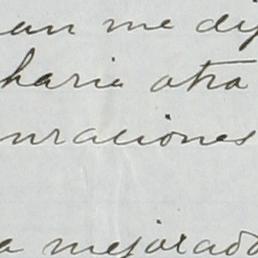 an me di
haria otra
uraciones
a mejorado